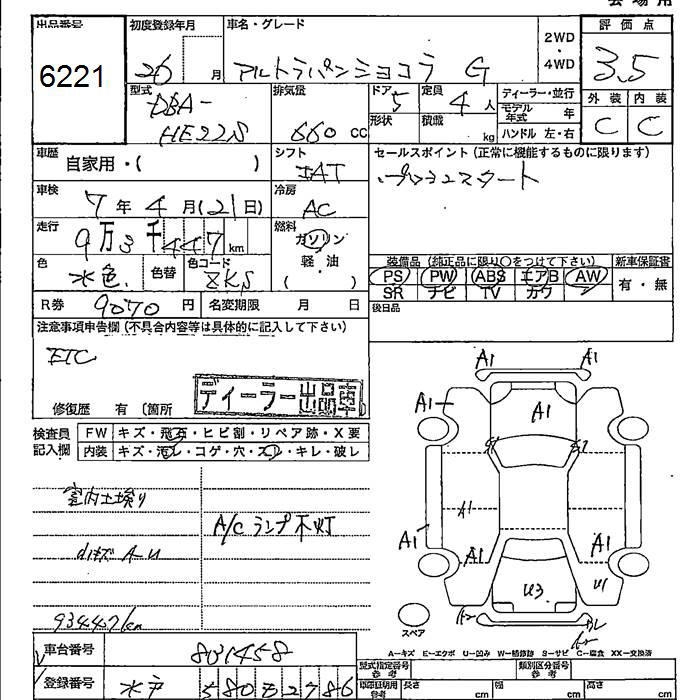 会場用
出品番号 初度登録年月 車名・グレード 評価点
6221 26 月 アルトラパンショコラ G 2WD・4WD 3.5
型式 DBA-HE22S 排気量 660 cc ドア 5 定員 4 人 ディーラー・並行 外装 内装
形状 積載 kg モデル年式 年 C C
ハンドル 左・右
車歴 自家用・( ) シフト セールスポイント (正常に機能するものに限ります)
車検 7 年 4 月 (21 日) 冷房 AC プッシュスタート
走行 9万3千447 km 燃料 ガソリン 軽・油 ( )
色 水色 色替 色コード 装備品 (純正品に限り○をつけて下さい) 新車保証書
PS PW ABS エアB AW 有・無
SR ナビ TV カワ
R券 9070 円 名変期限 月 日 後日品
注意事項申告欄 (不具合内容等は具体的に記入して下さい)
ETC
ディーラー出品車
修復歴 有 〔箇所
検査員記入欄 FW キズ・飛石・ヒビ割・リペア跡・X要
内装 キズ・汚レ・コゲ・穴・スレ・キレ・破レ
室内土残り
A/Cランプ不灯
小キズ A-U
93447km
A1 A1
A1 A1
A1
A1
A1 A1
U3 U1
スペア
A−キズ E−エクボ U−凹み W−補修跡 S−サビ C−腐食 XX−交換済
車台番号 801458
型式指定番号 参考 類別区分番号 参考
登録番号 水戸 580 2786
車庫証明用 参考 長さ cm 幅 cm 高さ cm